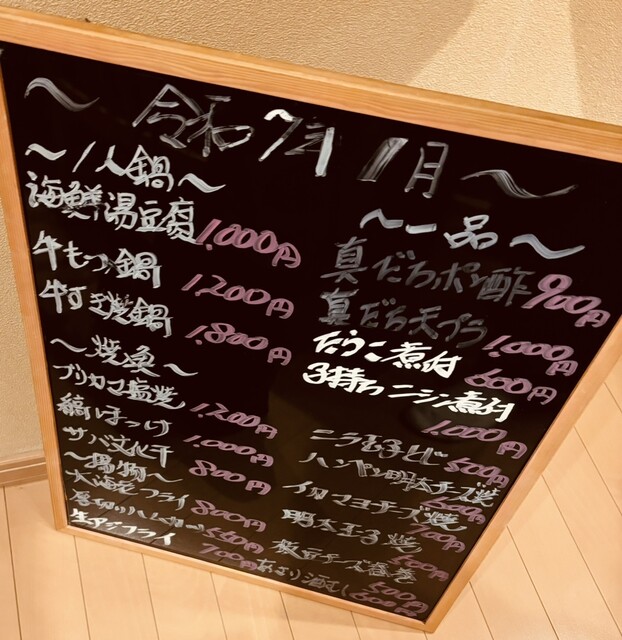 ～令和7年1月～
～1人鍋～
海鮮湯豆腐 1,000円
牛もつ鍋 1,200円
牛すき焼鍋 1,800円
～焼魚～
ブリカマ塩焼 1,200円
縞ほっけ 1,000円
サバ文化干 800円
～揚物～
大海老フライ 800円
厚切りハムカツ 550円
生アジフライ 700円
～一品～
真だちポン酢 900円
真だち天プラ 1,000円
たらこ煮付 600円
子持ちニシン煮付 1,000円
ニラ玉子とじ 500円
ハンペン明太チーズ焼
イカマヨチーズ焼 700円
明太玉子焼
枝豆チーズ春巻 500円
あさり酒むし 600円